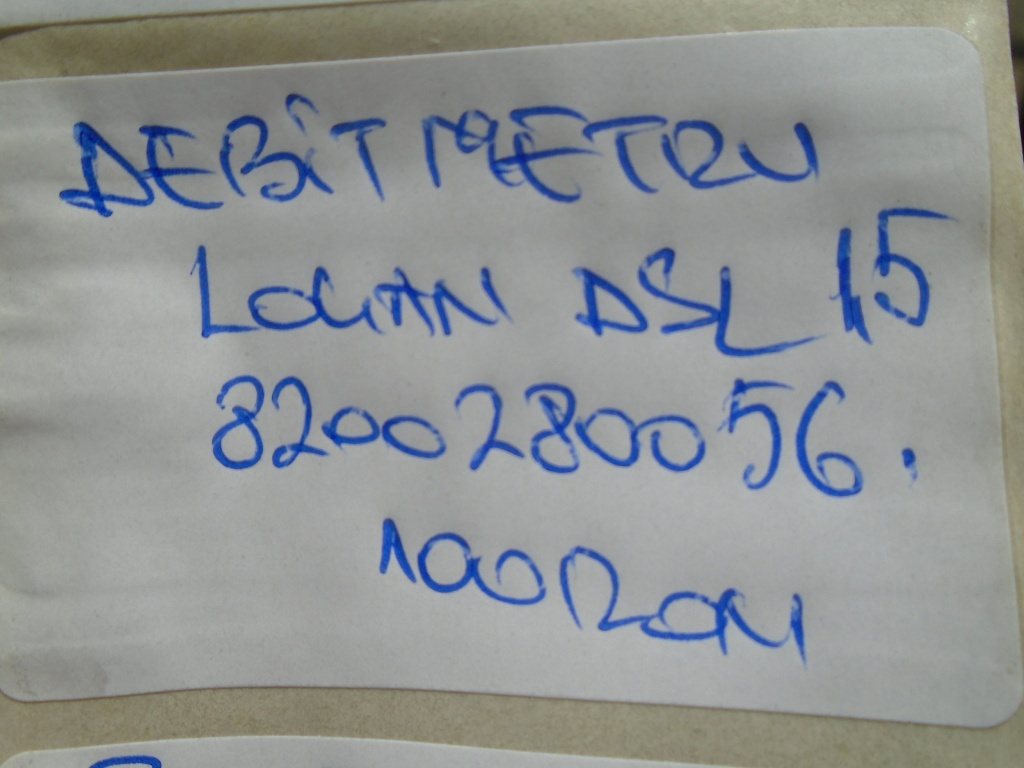 DEBiTMETRU
LOGAN DSL 1,5
8200280056.
100 RON